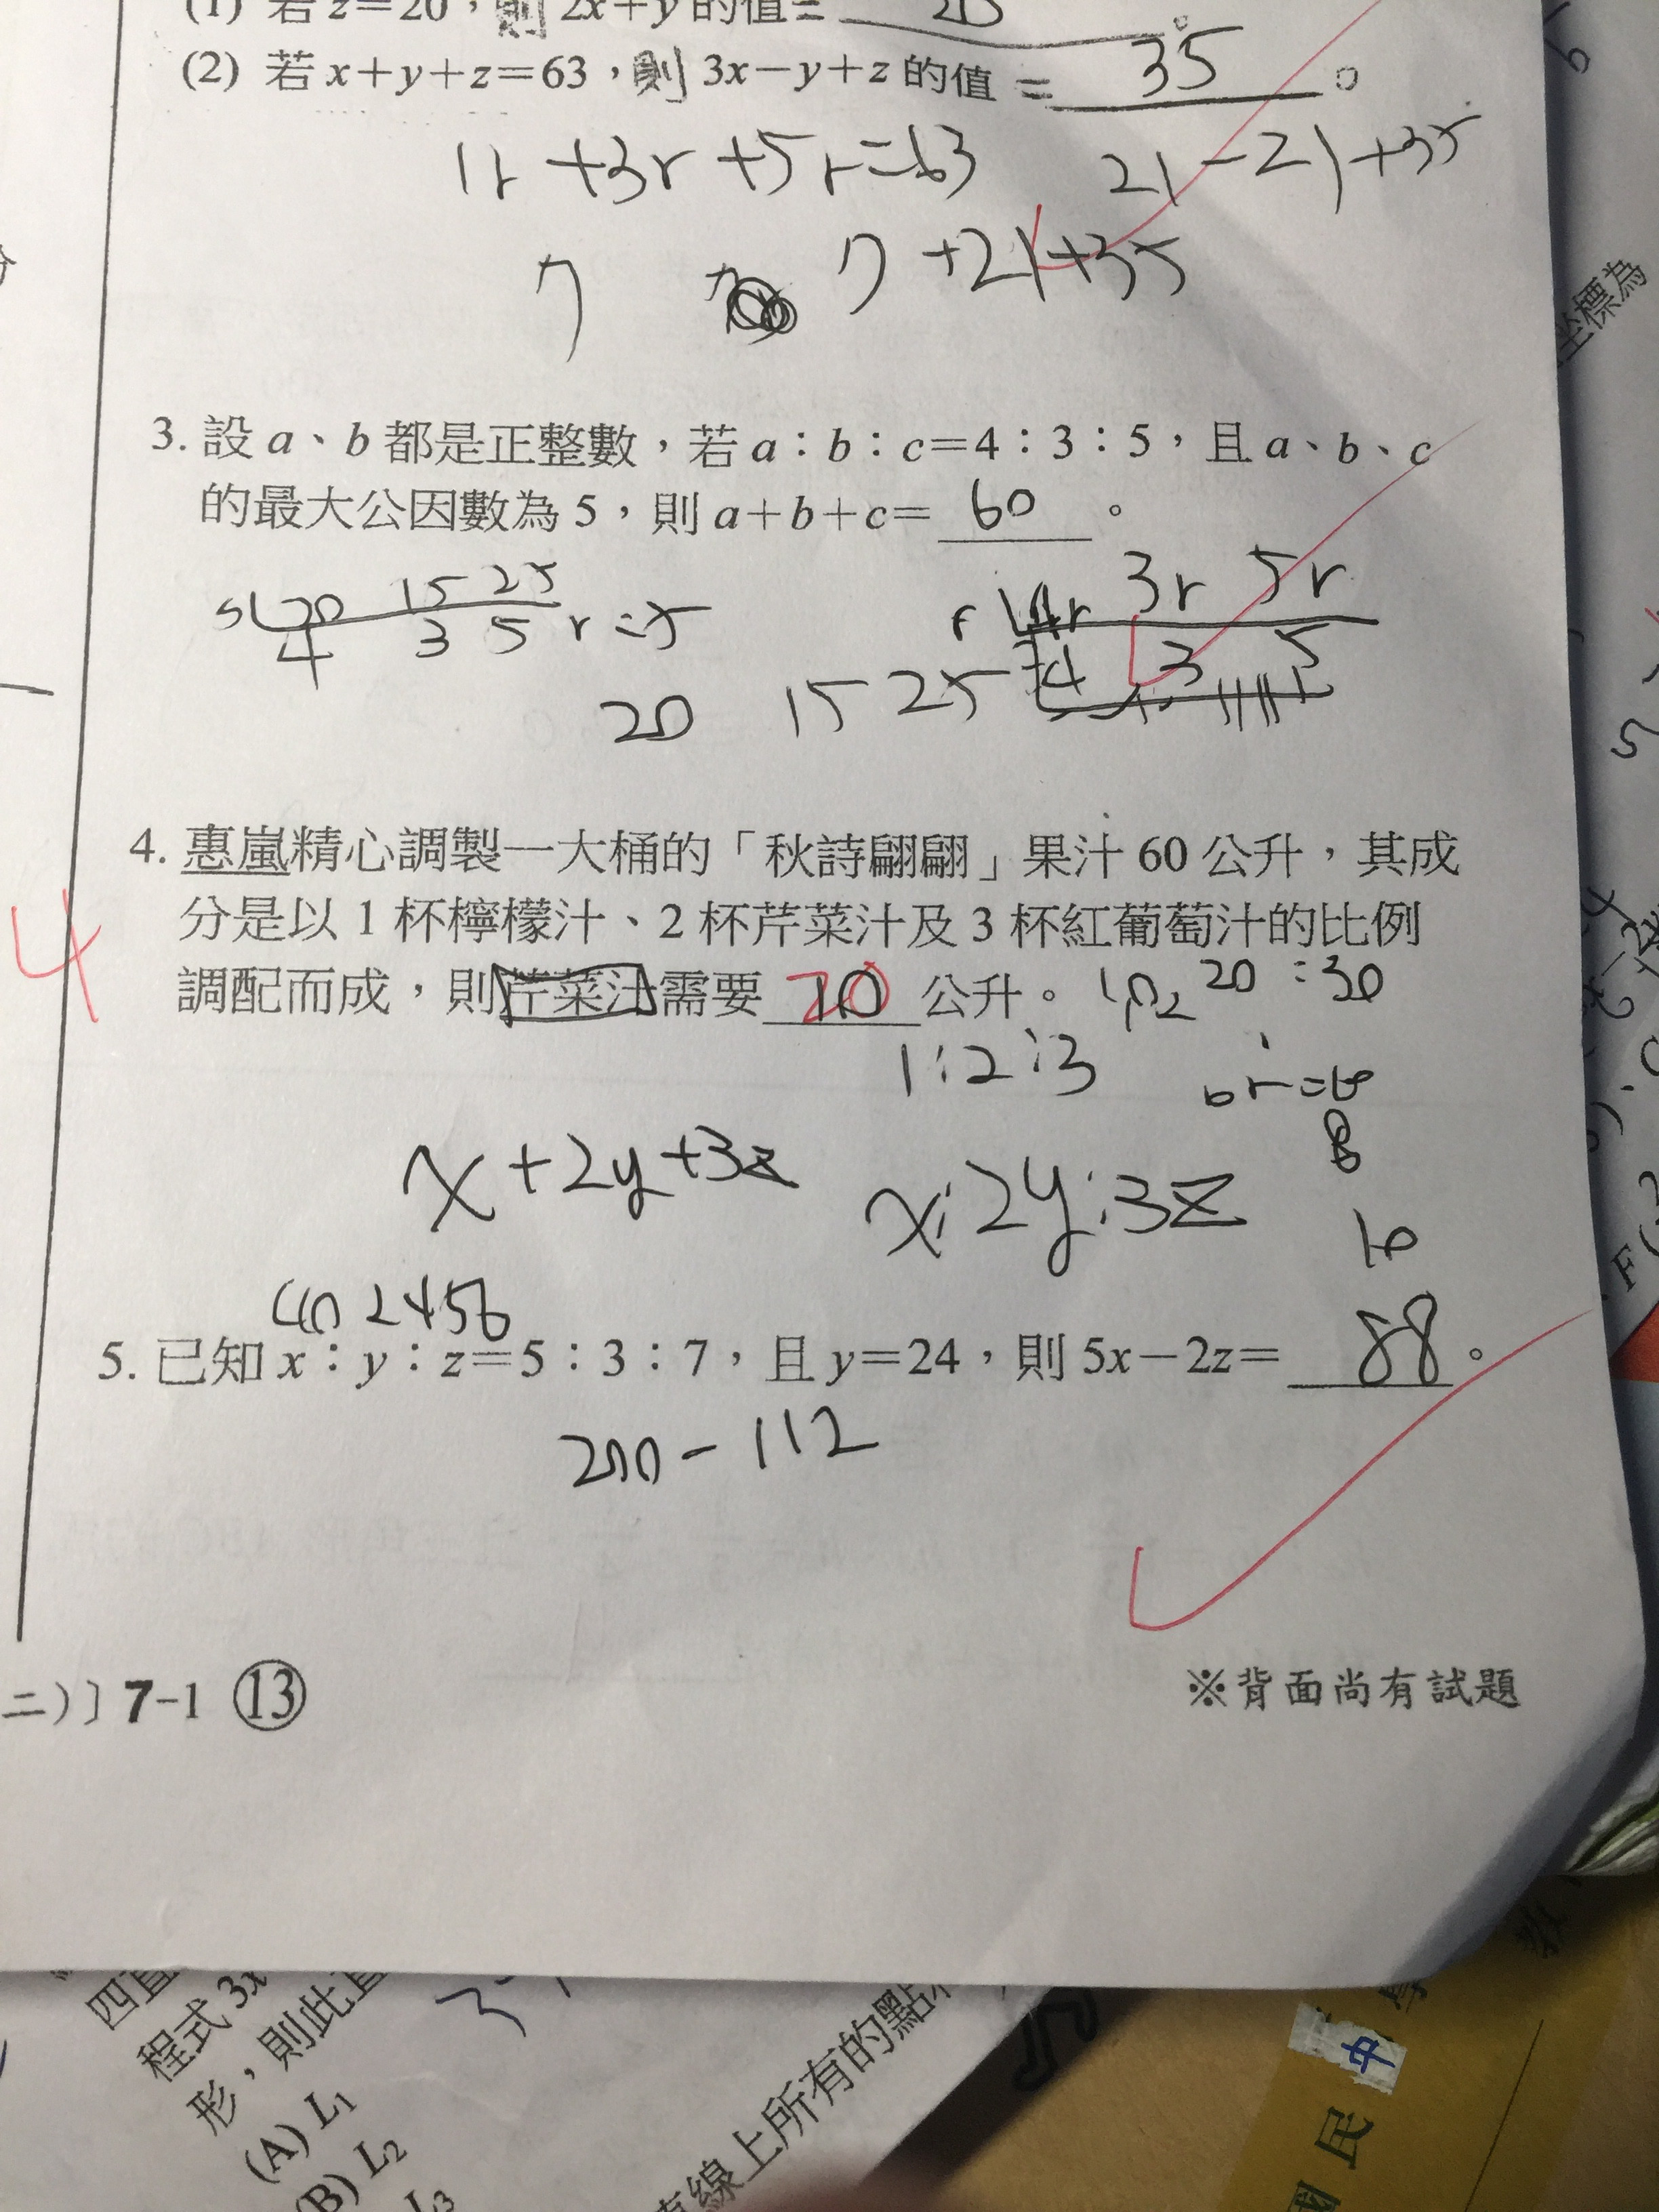 (1) 若 z=20，則 2x+y 的值=
(2) 若 x+y+z=63，則 3x-y+z 的值 = 35 。
1r +3r +5r=63 21-21+35
7 7+21+35
3. 設 a、b 都是正整數，若 a：b：c=4：3：5，且 a、b、c
的最大公因數為 5，則 a+b+c= 60 。
5 20 15 25
4 3 5 r=5
r 4r 3r 5r
4 3 5
20 15 25
4. 惠嵐精心調製一大桶的「秋詩翩翩」果汁 60 公升，其成
分是以 1 杯檸檬汁、2 杯芹菜汁及 3 杯紅葡萄汁的比例
調配而成，則芹菜汁需要 20 公升。
20:30
4
1:2:3
x+2y+3z x:2y:3z
10
40 24 56
5. 已知 x：y：z=5：3：7，且 y=24，則 5x-2z= 88 。
200-112
二)〕7-1 ⑬
※背面尚有試題
坐標為
程式 3x
形，則此直
(A) L1
(B) L2
線上所有的點
中
國民